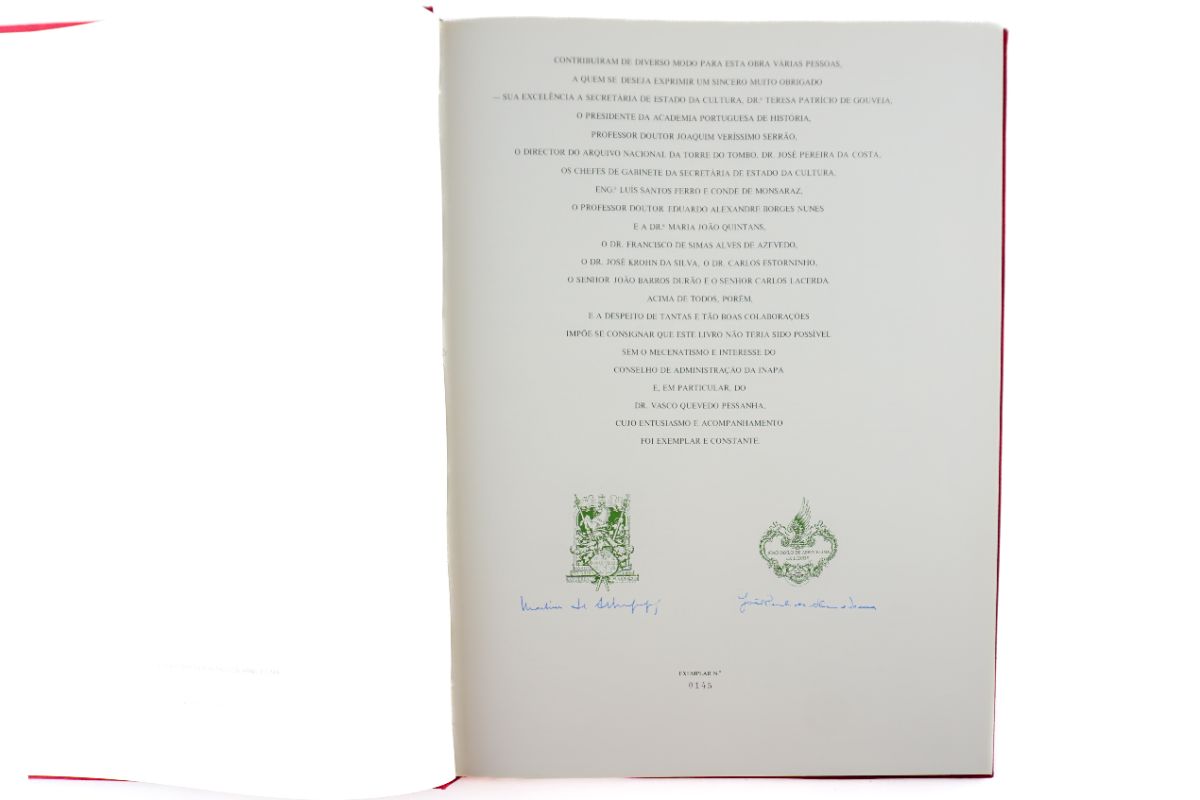 CONTRIBUÍRAM DE DIVERSO MODO PARA ESTA OBRA VÁRIAS PESSOAS,
A QUEM SE DESEJA EXPRIMIR UM SINCERO MUITO OBRIGADO
— SUA EXCELÊNCIA A SECRETÁRIA DE ESTADO DA CULTURA, DR.ª TERESA PATRÍCIO DE GOUVEIA,
O PRESIDENTE DA ACADEMIA PORTUGUESA DE HISTÓRIA,
PROFESSOR DOUTOR JOAQUIM VERÍSSIMO SERRÃO,
O DIRECTOR DO ARQUIVO NACIONAL DA TORRE DO TOMBO, DR. JOSÉ PEREIRA DA COSTA,
OS CHEFES DE GABINETE DA SECRETÁRIA DE ESTADO DA CULTURA,
ENG.º LUÍS SANTOS FERRO E CONDE DE MONSARAZ,
O PROFESSOR DOUTOR EDUARDO ALEXANDRE BORGES NUNES
E A DR.ª MARIA JOÃO QUINTANS,
O DR. FRANCISCO DE SIMAS ALVES DE AZEVEDO,
O DR. JOSÉ KROHN DA SILVA, O DR. CARLOS ESTORNINHO,
O SENHOR JOÃO BARROS DURÃO E O SENHOR CARLOS LACERDA.
ACIMA DE TODOS, PORÉM,
E A DESPEITO DE TANTAS E TÃO BOAS COLABORAÇÕES
IMPÕE-SE CONSIGNAR QUE ESTE LIVRO NÃO TERIA SIDO POSSÍVEL
SEM O MECENATISMO E INTERESSE DO
CONSELHO DE ADMINISTRAÇÃO DA INAPA
E, EM PARTICULAR, DO
DR. VASCO QUEVEDO PESSANHA,
CUJO ENTUSIASMO E ACOMPANHAMENTO
FOI EXEMPLAR E CONSTANTE.
EXEMPLAR N.º
0145